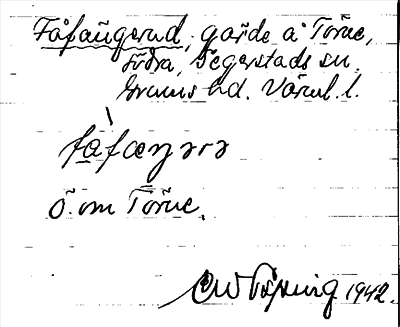 Fåfaŭgerud, gar̃de å Tor̃ne,
Södra, Segerstads sn.
Grums hd. Värml. l.
fåfæŋərə
Ö. om Tor̃ne.
1942.